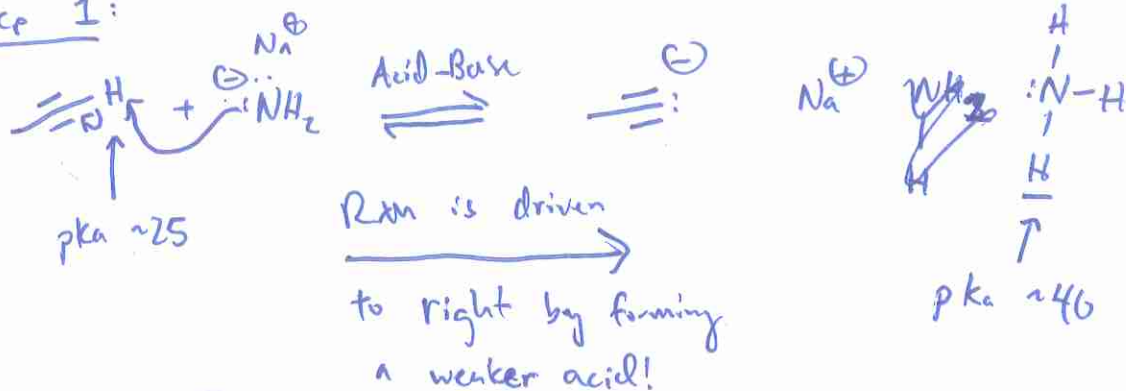 ep 1:
Na⊕
H + ⊖:NH₂ Acid-Base ⊖ : Na⊕ :N-H
H
H
pka ~25
Rxn is driven
to right by forming
a weaker acid!
pka ~40